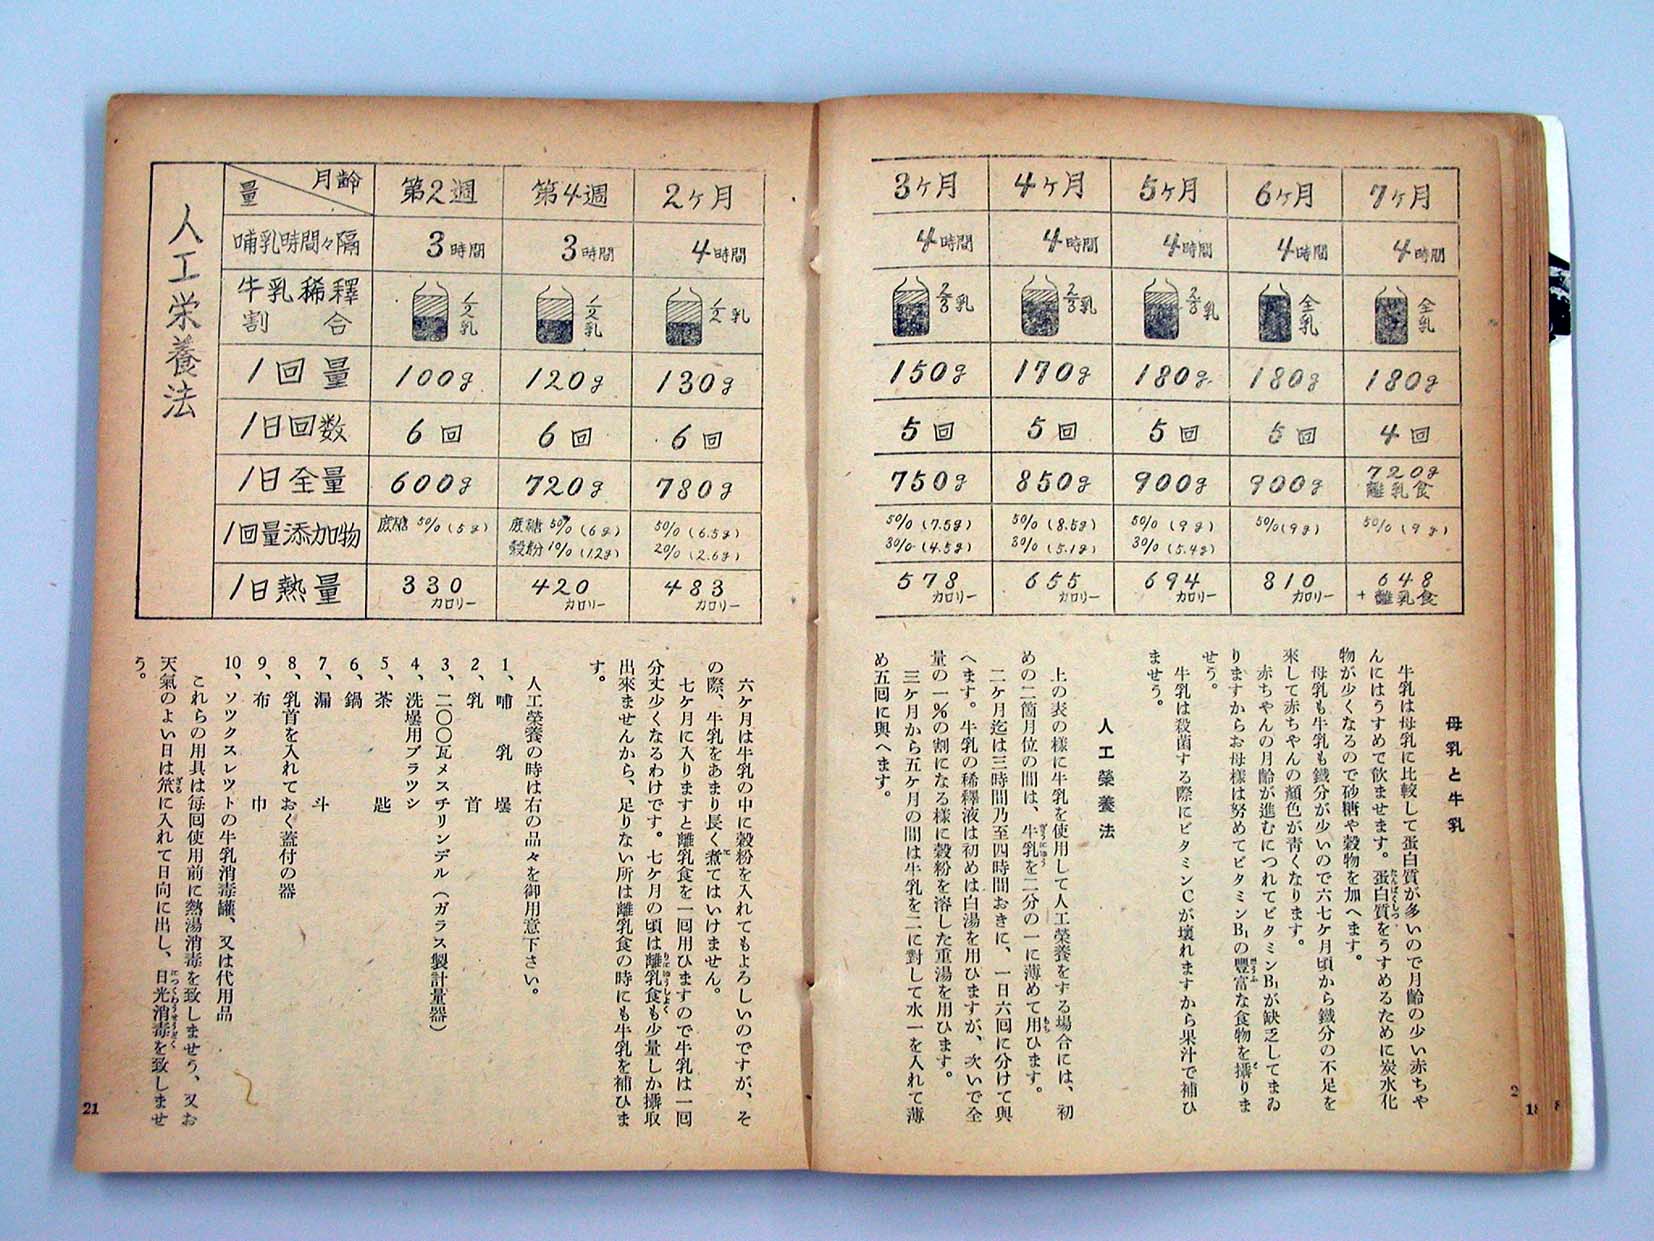 人工栄養法
月齢 量 第2週 第4週 2ヶ月 3ヶ月 4ヶ月 5ヶ月 6ヶ月 7ヶ月
哺乳時間々隔 3時間 3時間 4時間 4時間 4時間 4時間 4時間 4時間
牛乳稀釋割合 1/2乳 1/2乳 1/2乳 2/3乳 2/3乳 2/3乳 全乳 全乳
1回量 100g 120g 130g 150g 170g 180g 180g 180g
1日回数 6回 6回 6回 5回 5回 5回 5回 4回
1日全量 600g 720g 780g 750g 850g 900g 900g 720g 離乳食
1回量添加物 蔗糖 5% (5g) 蔗糖 5% (6g) 穀粉 1% (1.2g) 5% (6.5g) 2% (2.6g) 5% (7.5g) 3% (4.5g) 5% (8.5g) 3% (5.1g) 5% (9g) 3% (5.4g) 5% (9g) 5% (9g)
1日熱量 330カロリー 420カロリー 483カロリー 578カロリー 655カロリー 694カロリー 810カロリー 648+離乳食
母乳と牛乳
牛乳は母乳に比較して蛋白質が多いので月齢の少い赤ちや
んにはうすめて飲ませます。蛋白質をうすめるために炭水化
物が少くなるので砂糖や穀物を加へます。
母乳も牛乳も鐵分が少いので六七ケ月頃から鐵分の不足を
來して赤ちやんの顏色が靑くなります。
赤ちやんの月齢が進むにつれてビタミンB₁が缺乏してまゐ
りますからお母樣は努めてビタミンB₁の豐富な食物を攝りま
せう。
牛乳は殺菌する際にビタミンCが壞れますから果汁で補ひ
ませう。
人工榮養法
上の表の樣に牛乳を使用して人工榮養をする場合には、初
めの二箇月位の間は、牛乳を二分の一に薄めて用ひます。
二ケ月迄は三時間乃至四時間おきに、一日六回に分けて與
へます。牛乳の稀釋液は初めは白湯を用ひますが、次いで全
量の一%の割になる樣に穀粉を溶した重湯を用ひます。
三ケ月から五ケ月の間は牛乳を二に對して水一を入れて薄
め五回に與へます。
2
18
六ケ月は牛乳の中に穀粉を入れてもよろしいのですが、そ
の際、牛乳をあまり長く煮てはいけません。
七ケ月に入りますと離乳食を一回用ひますので牛乳は一回
分丈少くなるわけです。七ケ月の頃は離乳食も少量しか攝取
出來ませんから、足りない所は離乳食の時にも牛乳を補ひま
す。
人工榮養の時は右の品々を御用意下さい。
1、哺乳壜
2、乳首
3、二〇〇瓦メスチリンデル(ガラス製計量器)
4、洗壜用ブラツシ
5、茶匙
6、鍋
7、漏斗
8、乳首を入れておく蓋付の器
9、布巾
10、ソツクスレツトの牛乳消毒罐、又は代用品
これらの用具は每回使用前に熱湯消毒を致しませう、又お
天氣のよい日は笊に入れて日向に出し、日光消毒を致しませ
う。
21